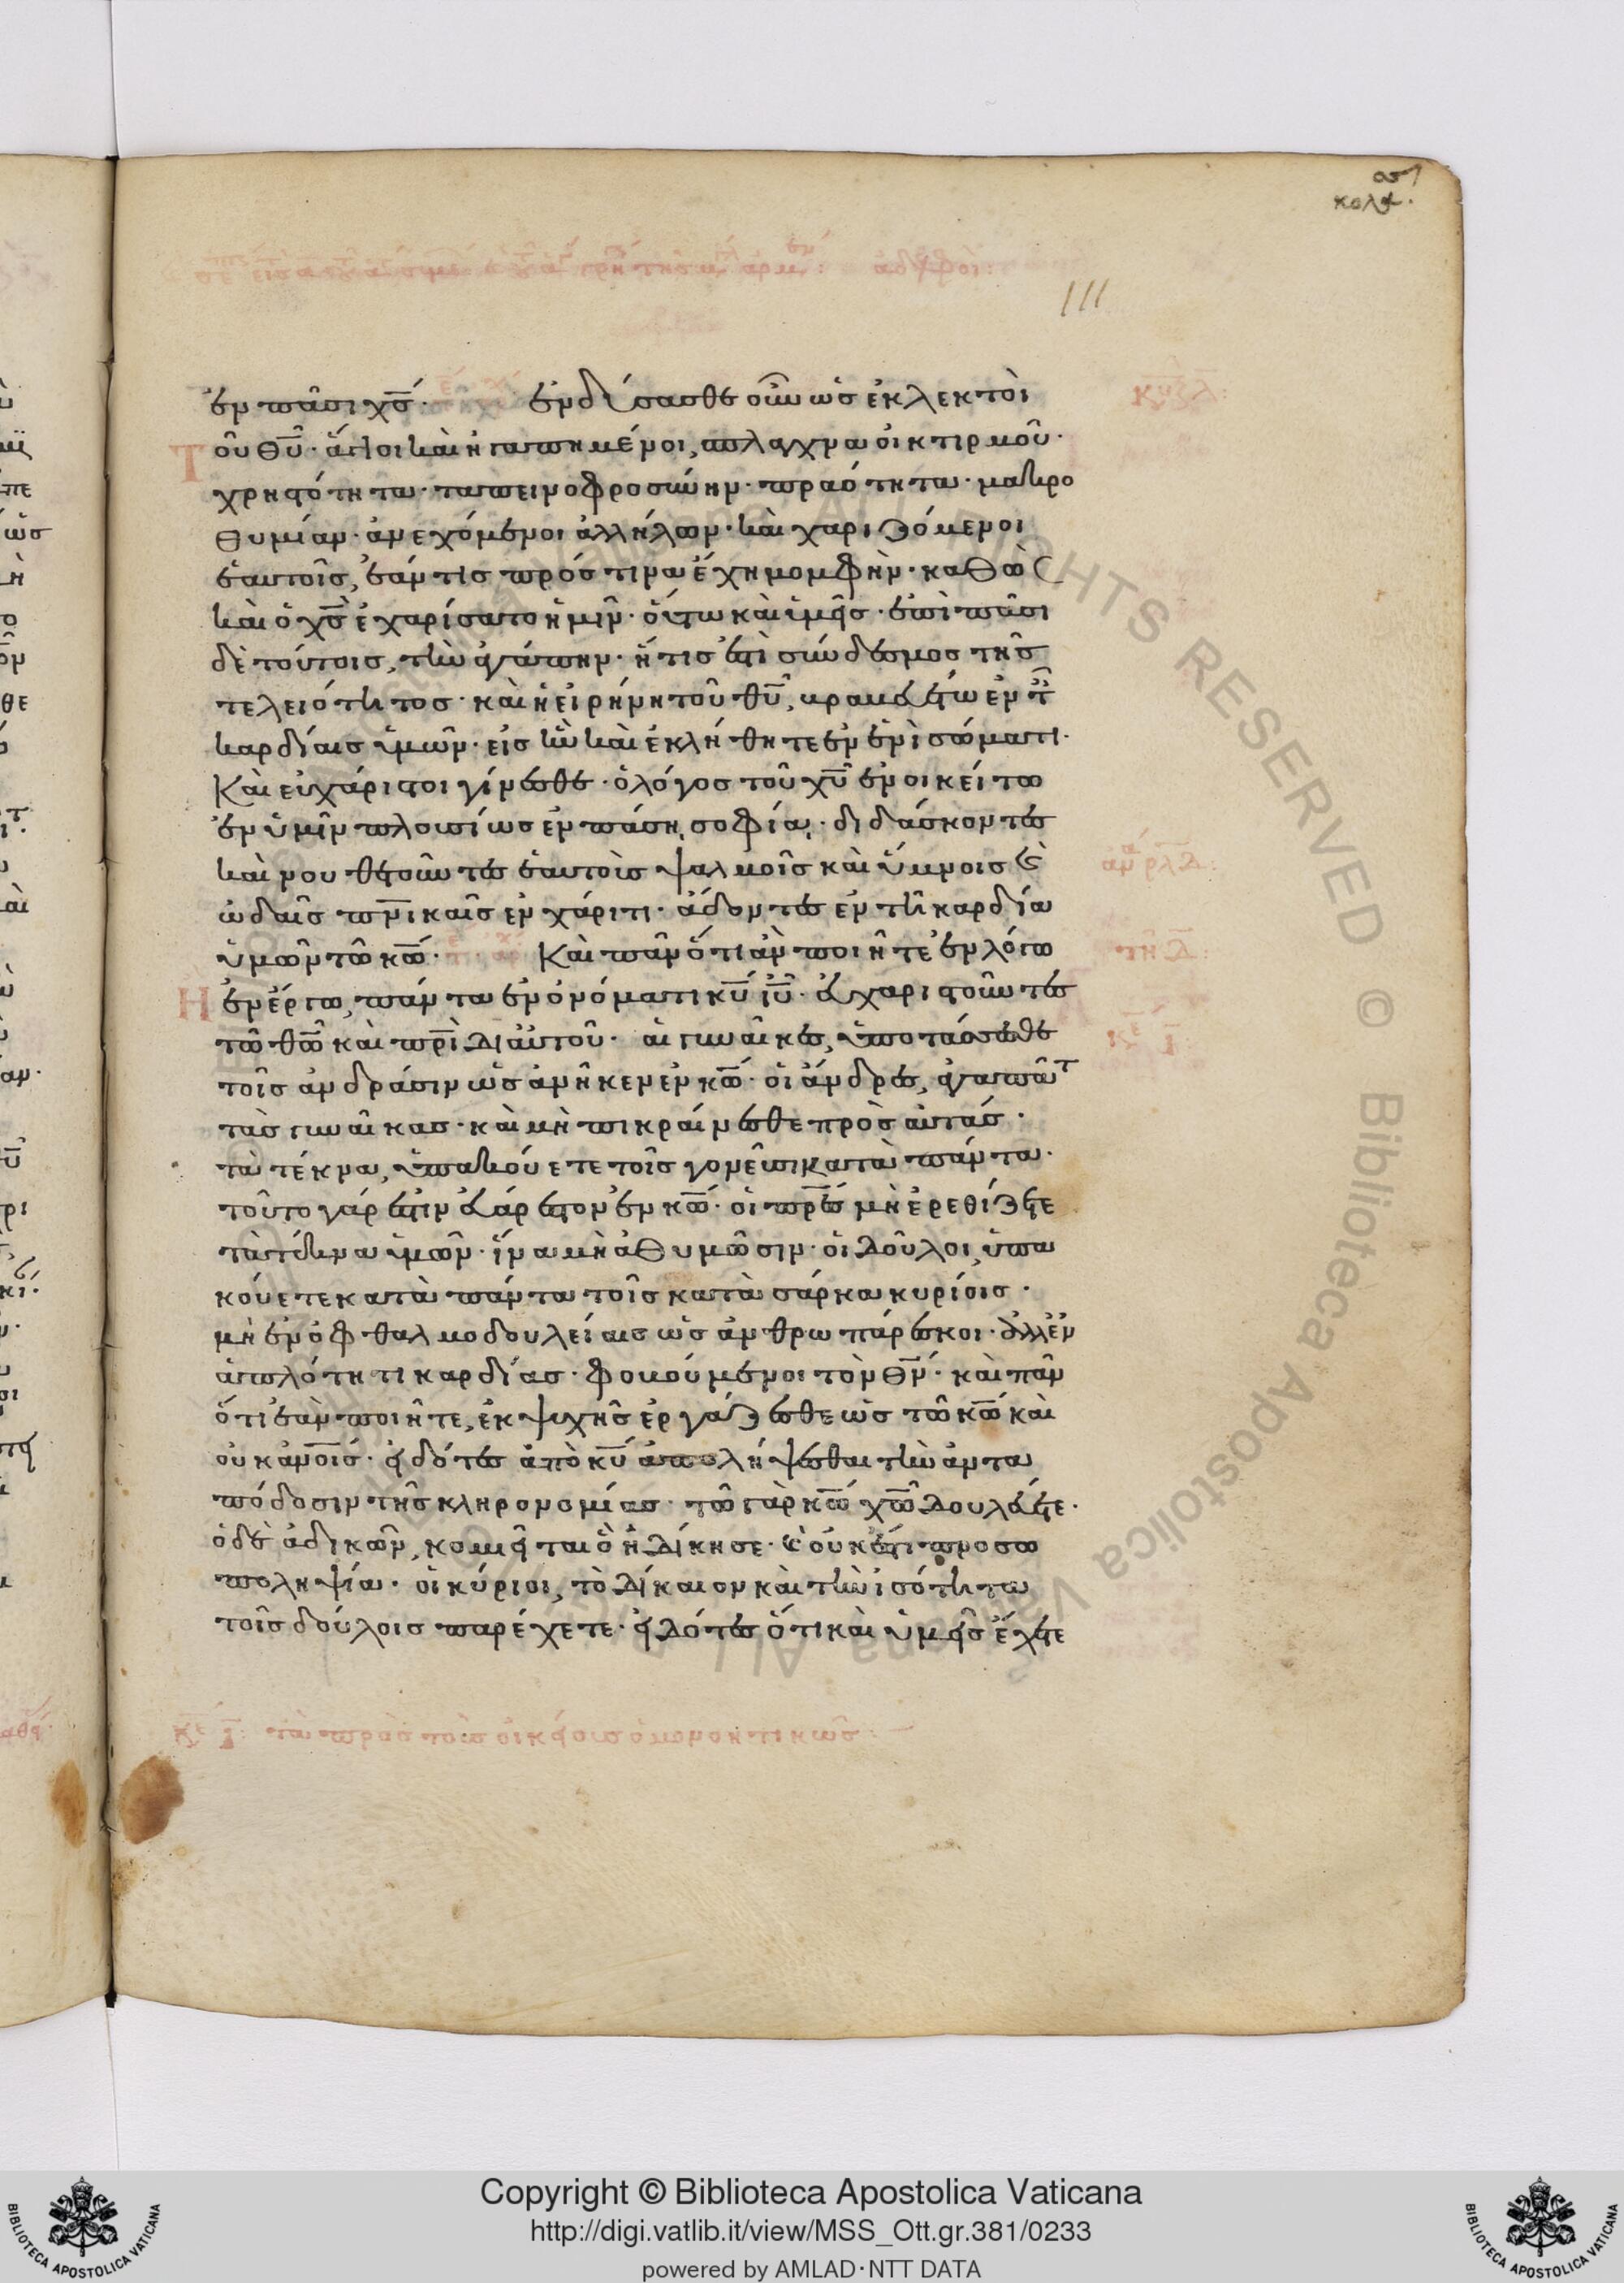 κολασ.
111
ἐν πᾶσι χς̅· ἐνδύσασθε οὖν ὡς ἐκλεκτοὶ
Τοῦ θυ̅· ἅγιοι καὶ ἠγαπημένοι, σπλάγχνα οἰκτιρμοῦ·
χρηστότητα· ταπεινοφροσύνην· πραότητα· μακρο
θυμίαν· ἀνεχόμενοι ἀλλήλων· καὶ χαριζόμενοι
ἑαυτοῖς, ἐάν τις πρός τινα ἔχη μομφήν· καθὼς
καὶ ὁ χς̅ ἐχαρίσατο ἡμῖν· οὕτω καὶ ὑμεῖς· ἐπὶ πᾶσι
δὲ τούτοις, τὴν ἀγάπην· ἥτις ἐστὶ σύνδεσμος τῆς
τελειότητος· καὶ ἡ εἰρήνη τοῦ θυ̅, βραβευέτω ἐν τ
καρδίαις ὑμῶν· εἰς ἣν καὶ ἐκλήθητε ἐν ἑνὶ σώματι·
Καὶ εὐχάριστοι γίνεσθε· ὁ λόγος τοῦ χυ̅ ἐνοικείτω
ἐν ὑμῖν πλουσίως ἐν πάση σοφία· διδάσκοντες
καὶ νουθετοῦντες ἑαυτοὺς ψαλμοῖς καὶ ὕμνοις καὶ
ὠδαῖς πν̅ικαῖς ἐν χάριτι· ἄδοντες ἐν τῆ καρδία
ὑμῶν τῶ κω̅· Καὶ πᾶν ὅτι ἂν ποιῆτε ἐν λόγω
Ἢ ἐν ἔργω, πάντα ἐν ὀνόματι κυ̅ ιυ̅· εὐχαριστοῦντες
τῶ θω̅ καὶ πρι̅ δι αὐτοῦ· αἱ γυναῖκες, ὑποτάσσεσθε
τοῖς ἀνδράσιν ὡς ἀνῆκεν ἐν κω̅· οἱ ἄνδρες, ἀγαπᾶτ
τὰς γυναῖκας· καὶ μὴ πικραίνεσθε πρὸς αὐτάς·
τὰ τέκνα, ὑπακούετε τοῖς γονεῦσι κατὰ πάντα·
τοῦτο γάρ ἐστιν εὐάρεστον ἐν κω̅· οἱ πρε̅ς μὴ ἐρεθίζετε
τὰ τέκνα ὑμῶν· ἵνα μὴ ἀθυμῶσιν· οἱ δοῦλοι, ὑπα
κούετε κατὰ πάντα τοῖς κατὰ σάρκα κυρίοις·
μὴ ἐν ὀφθαλμοδουλείαις ὡς ἀνθρωπάρεσκοι· ἀλλ ἐν
ἁπλότητι καρδίας· φοβούμενοι τὸν θν̅· καὶ πᾶν
ὅτι ἐὰν ποιῆτε, ἐκ ψυχῆς ἐργάζεσθε ὡς τῶ κω̅ καὶ
οὐκ ἀνοις̅· εἰδότες ἀπὸ κυ̅ ἀπολήψεσθαι τὴν ἀντα
πόδοσιν τῆς κληρονομίας· τῶ γὰρ κω̅ χω̅ δουλεύετε·
ὁ δὲ ἀδικῶν, κομιεῖται ὃ ἠδίκησε· καὶ οὐκ ἔστι προσω
ποληψία· οἱ κύριοι, τὸ δίκαιον καὶ τὴν ἰσότητα
τοῖς δούλοις παρέχετε· εἰδότες ὅτι καὶ ὑμεῖς ἔχετε
Copyright © Biblioteca Apostolica Vaticana
http://digi.vatlib.it/view/MSS_Ott.gr.381/0233
powered by AMLAD·NTT DATA